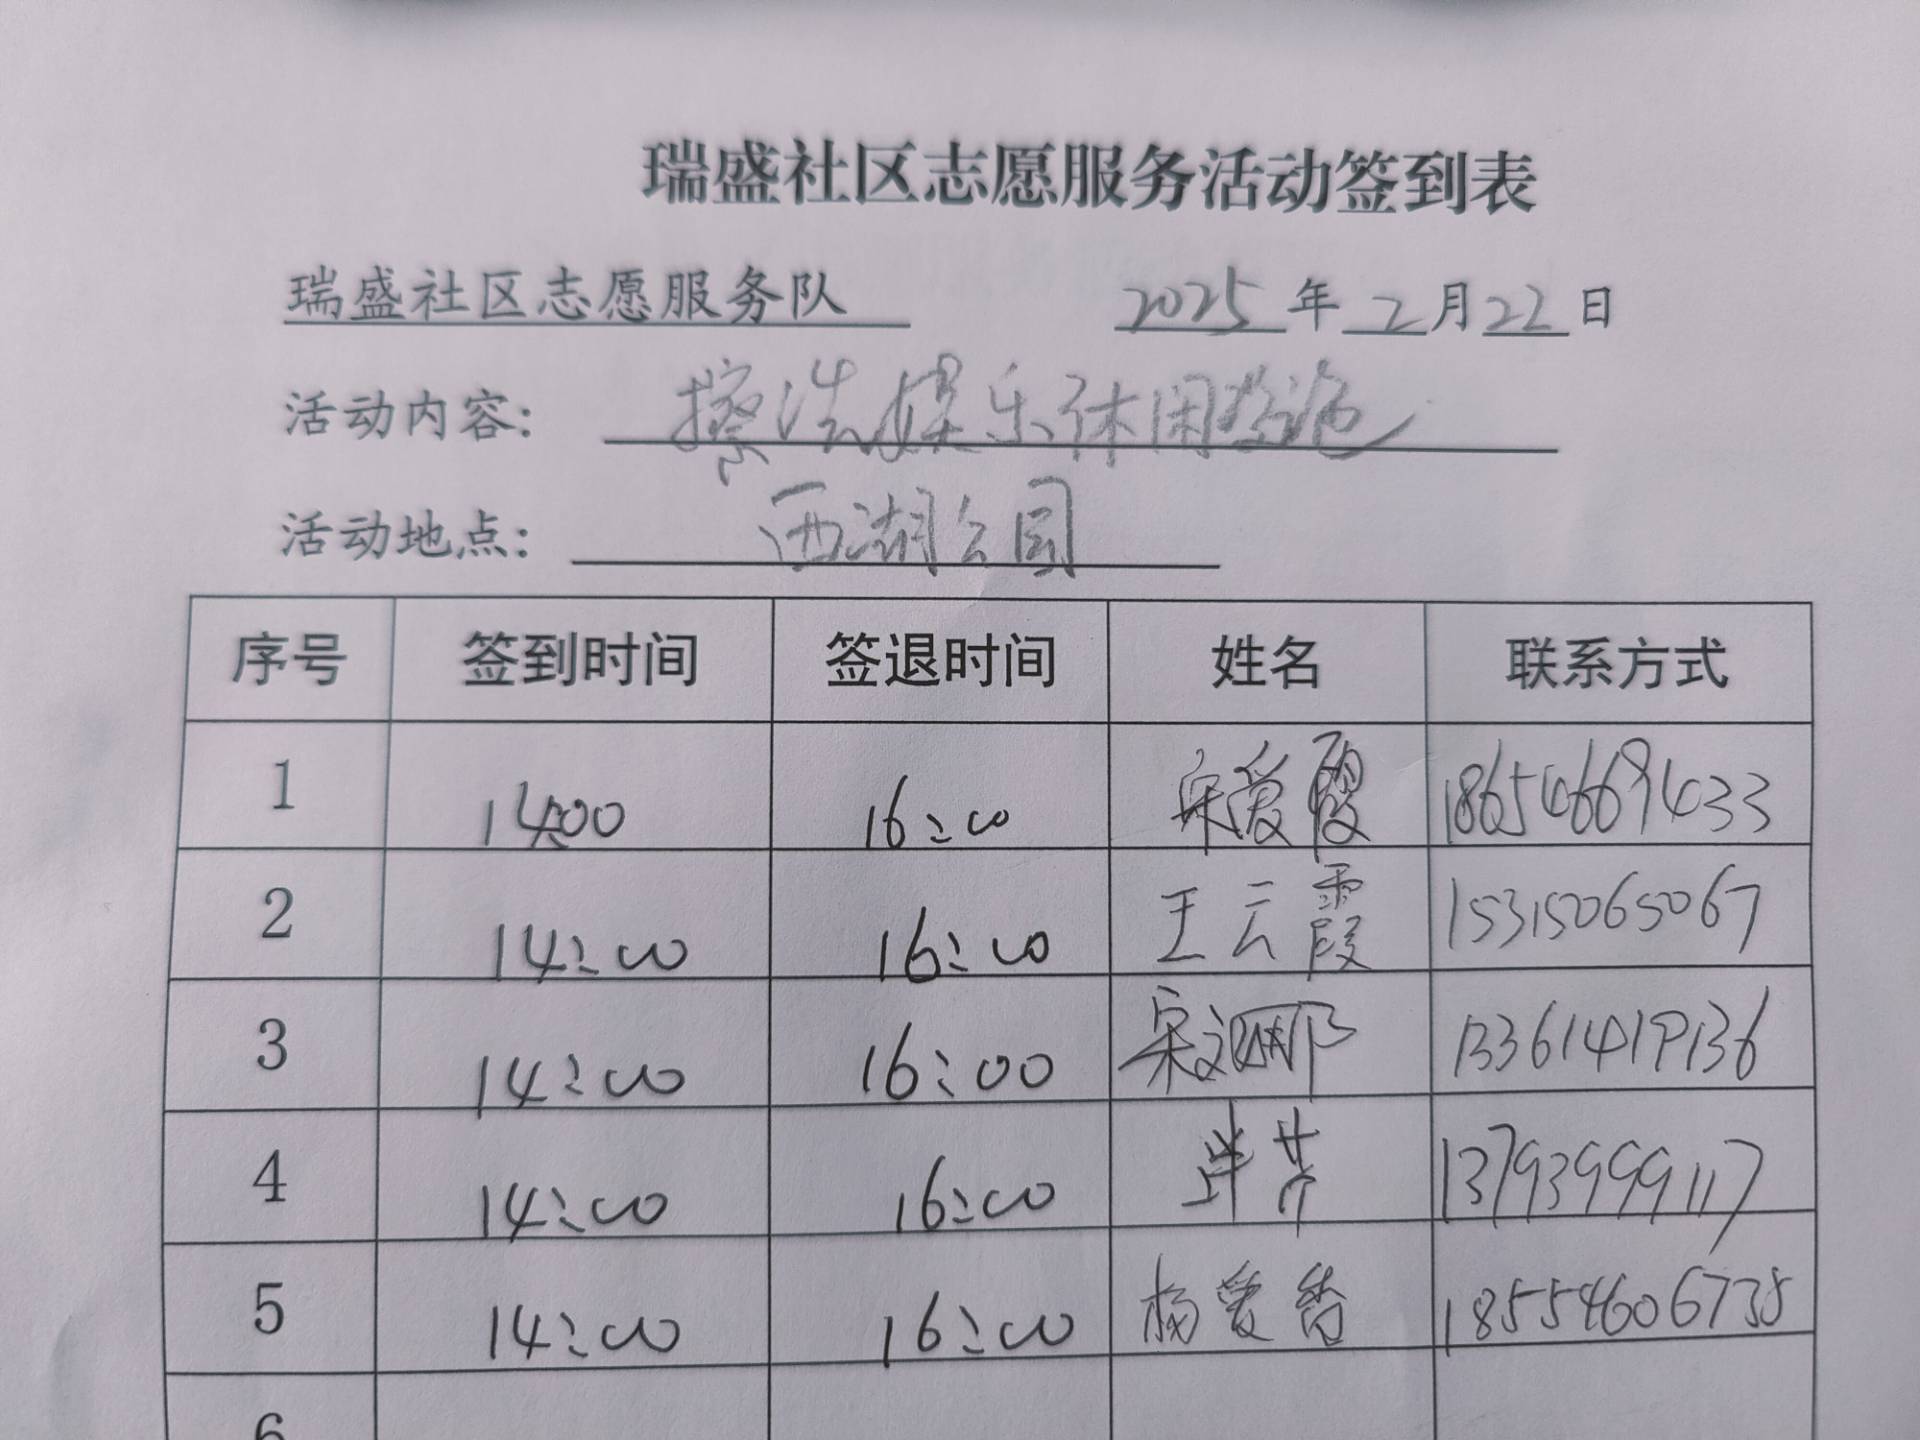 瑞盛社区志愿服务活动签到表
瑞盛社区志愿服务队 2025年2月22日
活动内容: 擦洗娱乐休闲设施
活动地点: 西湖公园
序号 签到时间 签退时间 姓名 联系方式
1 14:00 16:00 宋爱霞 18654669433
2 14:00 16:00 王云霞 15315065067
3 14:00 16:00 宋 13361419136
4 14:00 16:00 13793999117
5 14:00 16:00 杨爱香 18554606735
6